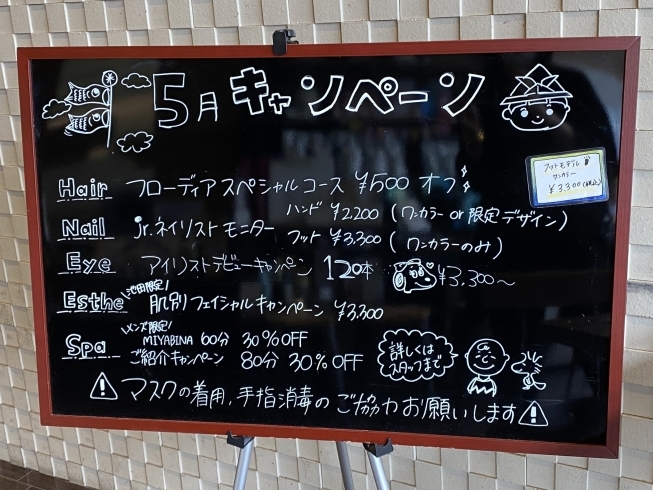 5月 キャンペーン
フットモデル
ワンカラー
¥3,300(税込)
Hair フローディアスペシャルコース ¥500 オフ
Nail jr.ネイリストモニター ハンド ¥2,200 (ワンカラー or 限定デザイン)
フット ¥3,300 (ワンカラーのみ)
Eye アイリストデビューキャンペーン 120本 ¥3,300〜
池田限定!
Esthe 肌別フェイシャルキャンペーン ¥3,300
メンズ限定!
Spa MIYABINA 60分 30%OFF
ご紹介キャンペーン 80分 30%OFF
詳しくは
スタッフまで
マスクの着用、手指消毒のご協力お願いします